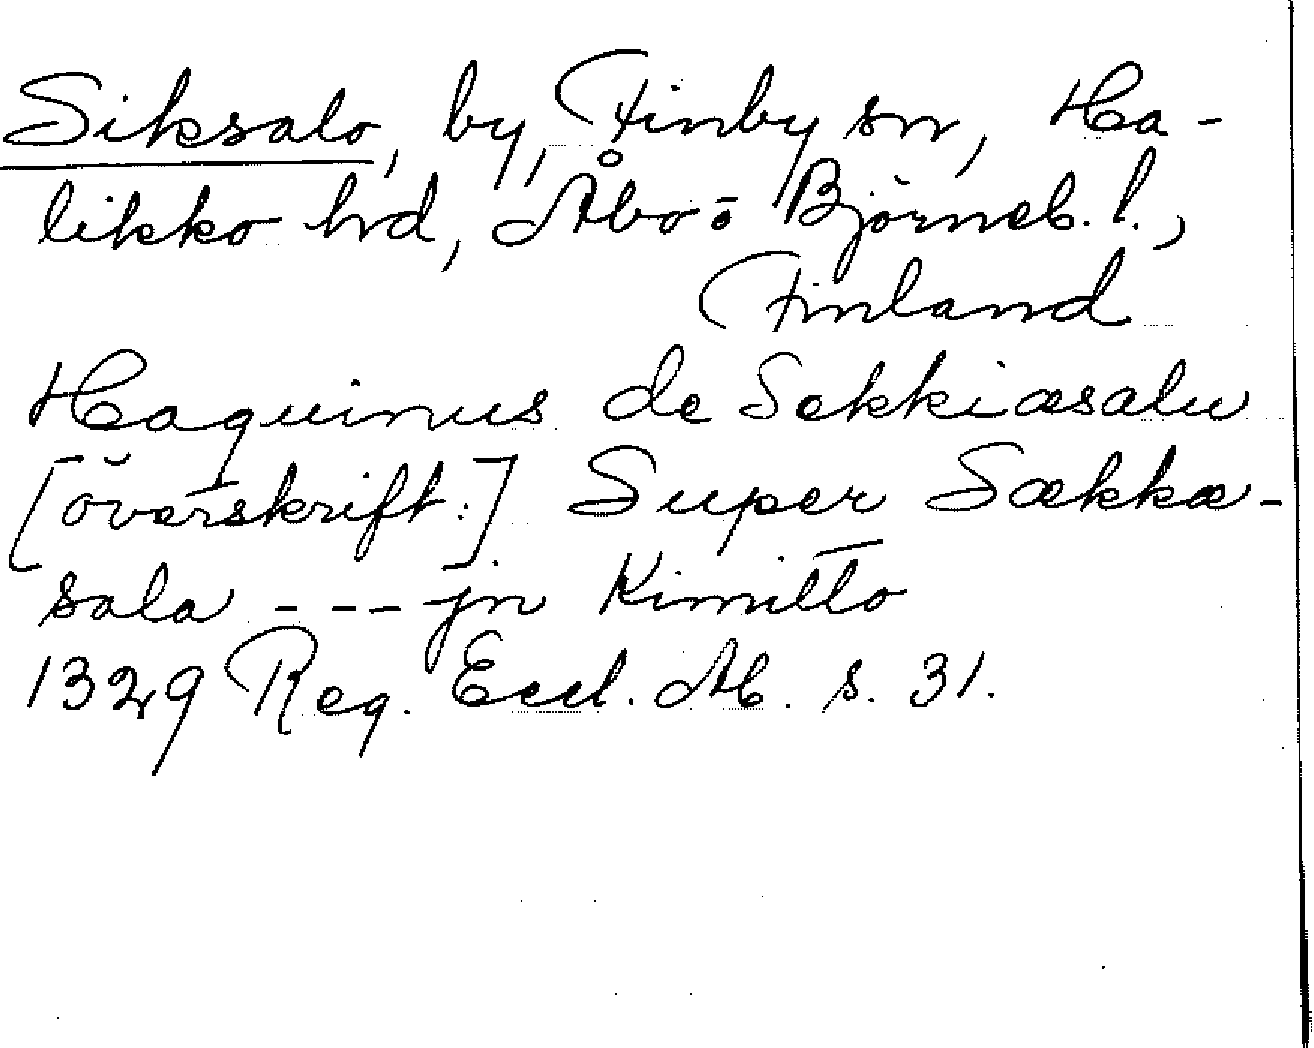 Siksalo, by, Finby sn, Ha-
likko hd, Åbo o Björneb. l.,
Finland
Haquinus de Sekkiæsalu
[överskrift:] Super Sækkæ-
sala --- jn Kimitto
1329 Reg. Eccl. Ab. s. 31.